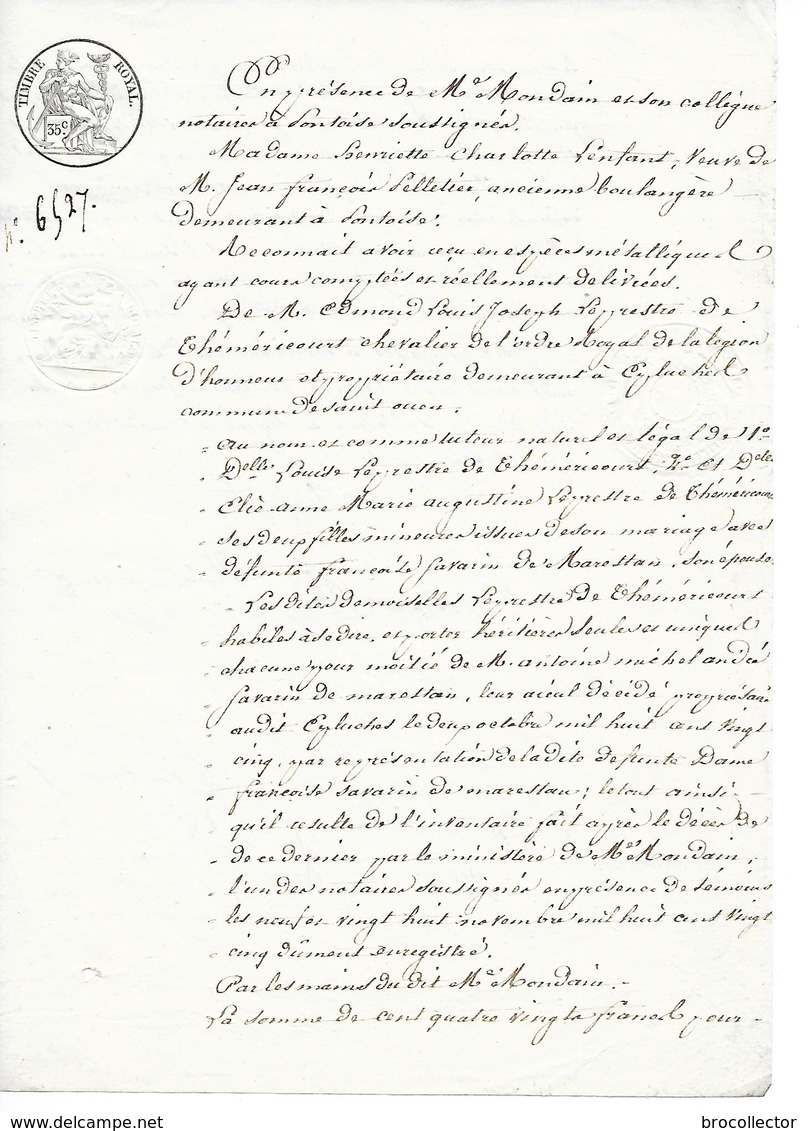 TIMBRE ROYAL.
35c
N° 6527.
En présence de Me Mondain et son collègue
notaires à Pontoise soussignés.
Madame henriette Charlotte Lenfant, veuve de
M. Jean françois Pelletier, ancienne boulangère
demeurant à Pontoise.
Reconnait avoir reçu en espèces métalliques
ayant cours comptées et réellement delivrées.
De M. Edmond Louis Joseph Leprestre de
Théméricourt chevalier de l'ordre Royal de la légion
d'honneur et propriétaire demeurant à Epluches
commune de saint ouen.
au nom et comme tuteur naturel et légal de 1°
Delle Louise Leprestre de Théméricourt, 2° et Delle
Elie-anne Marie augustine Leprestre de Théméricourt
ses deux filles mineures issues de son mariage avec
défunte françoise Savarin de Marestan, son épouse
Lesdites demoiselles Leprestre de Théméricourt
habiles à se dire, et porter héritières seules et uniques
chacune pour moitié de M. antoine michel andré
Savarin de marestan, leur aïeul décédé propriétaire
audit Epluches le deux octobre mil huit cent vingt
cinq, par représentation de la dite defunte Dame
françoise savarin de marestan; le tout ainsi
qu'il resulte de l'inventaire fait après le décès de
de ce dernier par le ministère de Me Mondain,
l'un des notaires soussignés en présence de témoins
les neuf et vingt huit novembre mil huit cent vingt
cinq dûment enregistré.
Par les mains du dit Me Mondain.
La somme de cent quatre vingts francs pour
www.delcampe.net
brocollector